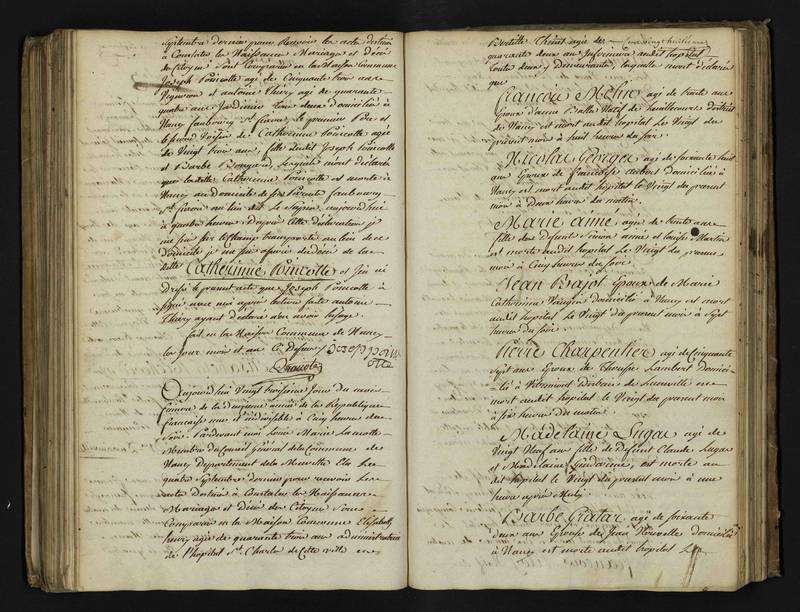 Septembre dernier pour Recevoir les actes destinés
à Constater les Naissances Mariages et Décès
des Citoyens Sont Comparus en la Maison Commune
Joseph Poincotte agé de Cinquante trois ans
Vigneron et antoine Thiery agé de quarante
quatre ans Jardinier tous deux domiciliés à
Nancy faubourg St fiacre, le premier Pere et
le second Voisin de Catherinne Poincotte agée
de Vingt trois ans, fille dudit Joseph Poincotte
et Barbe lesquels m'ont déclaré
que ladite Catherinne Poincotte est morte à
Nancy au domicile de ses Parents faubourg
St fiacre au lieu dit aujourd'hui
à quatre heures d'après cette déclaration je
me suis sur le champ transporté au lieu de ce
domicile je me suis assuré du décès de la
ditte Catherinne Poincotte et j'en ai
dressé le present acte que Joseph Poincotte à
signé avec moi après lecture faite antoine
Thiery ayant déclaré
fait en la Maison Commune de Nancy
les Jour mois et an Ci dessus / Joseph poin
cotte
aujourd'hui Vingt troisième Jour du mois
frimaire de la deuxieme année de la Republique
francaise une et indivisible à Cinq heures du
Soir Pardevant moi Louis Marie Lamotte
Membre du Conseil Général de la Commune de
Nancy Departement de la Meurthe Elu le
quatre Septembre dernier pour recevoir les
actes destinés à Constater les Naissances
Mariages et Décès des Citoyens Sont
Comparus en la Maison Commune Elisabeth
henry agée de quarante trois ans administratrice
de l'hopital St Charles de Cette ville et
agée de
quarante deux ans Infirmiere audit hopital
toutes deux y demeurantes, lesquelles m'ont déclaré
que
francois Molin agé de trente ans
Epoux d'anne Natif de district
de Nancy est mort audit hopital le Vingt du
présent mois à huit heures du soir.
Nicolas Georges agé de soixante huit
ans Epoux de francoise aubert domicilié à
Nancy est mort audit hopital le Vingt du present
mois à deux heures du matin.
Marie aimé agée de trente ans
fille des defunts Simon aimé et Louise Martin
est morte audit hopital le Vingt du present
mois à Cinq heures du soir.
Jean Bajot Epoux de Marie
Catherinne domicilié à Nancy est mort
audit hopital le Vingt du present mois à Sept
heures du soir.
Pierre Charpentier agé de Cinquante
Sept ans Epoux de Therese Lambert domici-
lié à district de Luneville est
mort audit hopital le Vingt du present mois
à six heures du matin.
Madelaine Lugas agé de
Vingt Neuf ans fille de defunt Claude Lugas
et Madelaine Gendarme, est morte au
dit hopital le Vingt du present mois à une
heure après Midy.
Barbe Gratas agée de soixante
deux ans Epouse de Jean domicilié
à Nancy est morte audit hopital Le